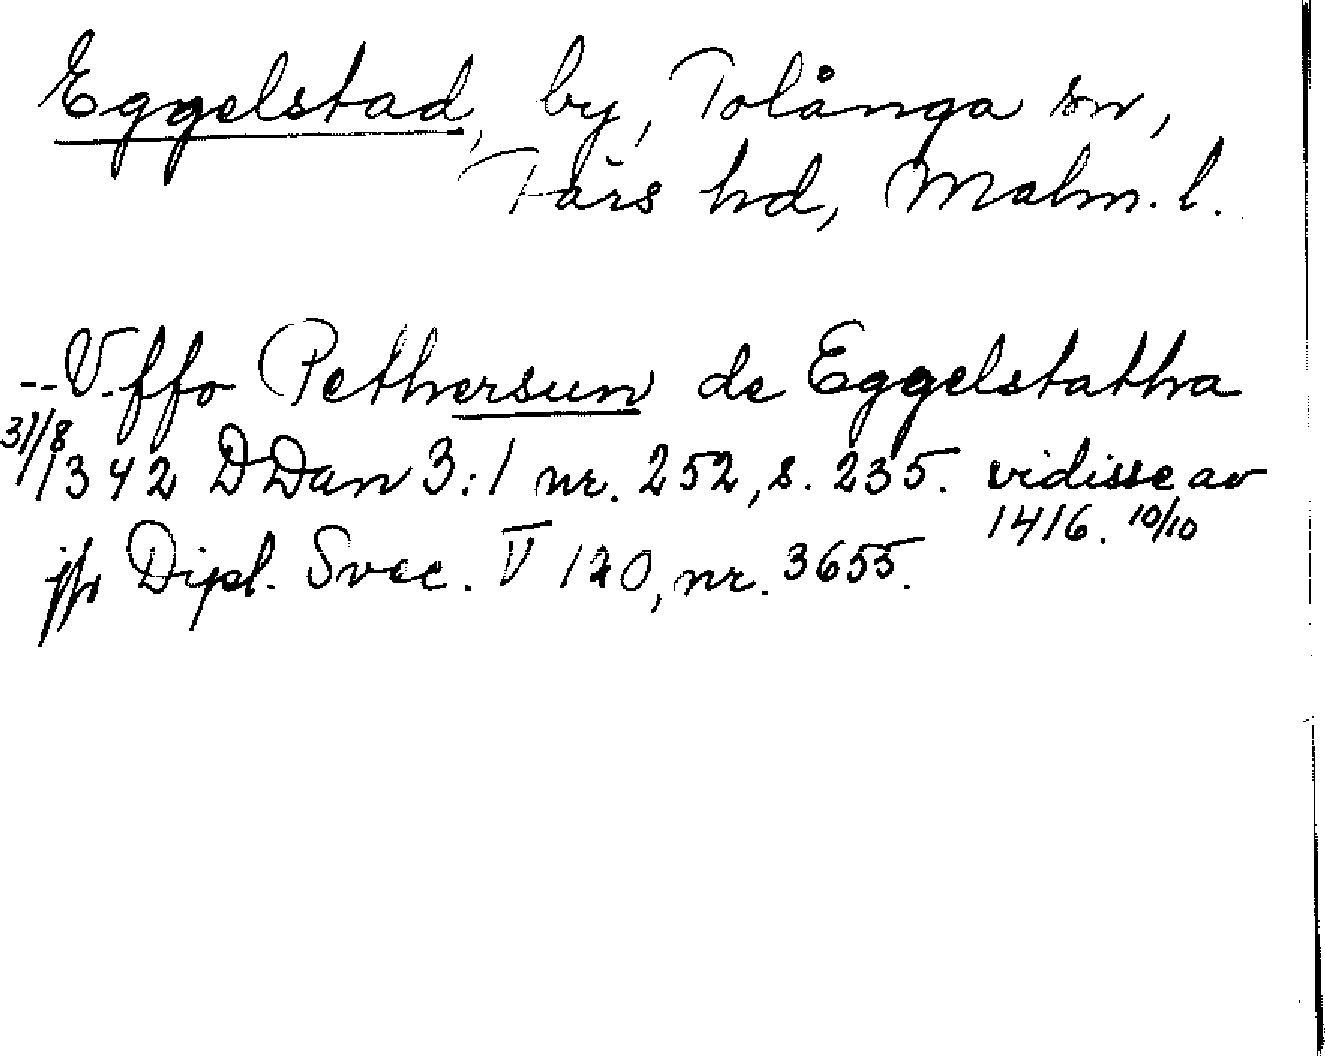 Eggelstad, by, Tolånga sn,
Färs hd, Malm. l.
-- Vffo Pethersun de Eggelstathra
31/8 1342 DDan 3:1 nr. 252, s. 235. vidisse av
1416. 10/10
jfr Dipl. Svec. V 120, nr. 3655.